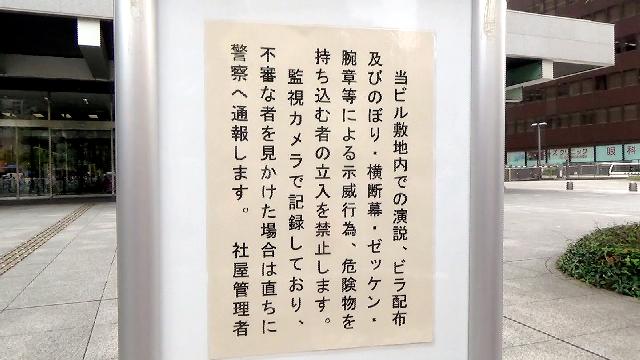 当ビル敷地内での演説、ビラ配布
及びのぼり・横断幕・ゼッケン・
腕章等による示威行為、危険物を
持ち込む者の立入を禁止します。
監視カメラで記録しており、
不審な者を見かけた場合は直ちに
警察へ通報します。 社屋管理者
クリニック
眼科